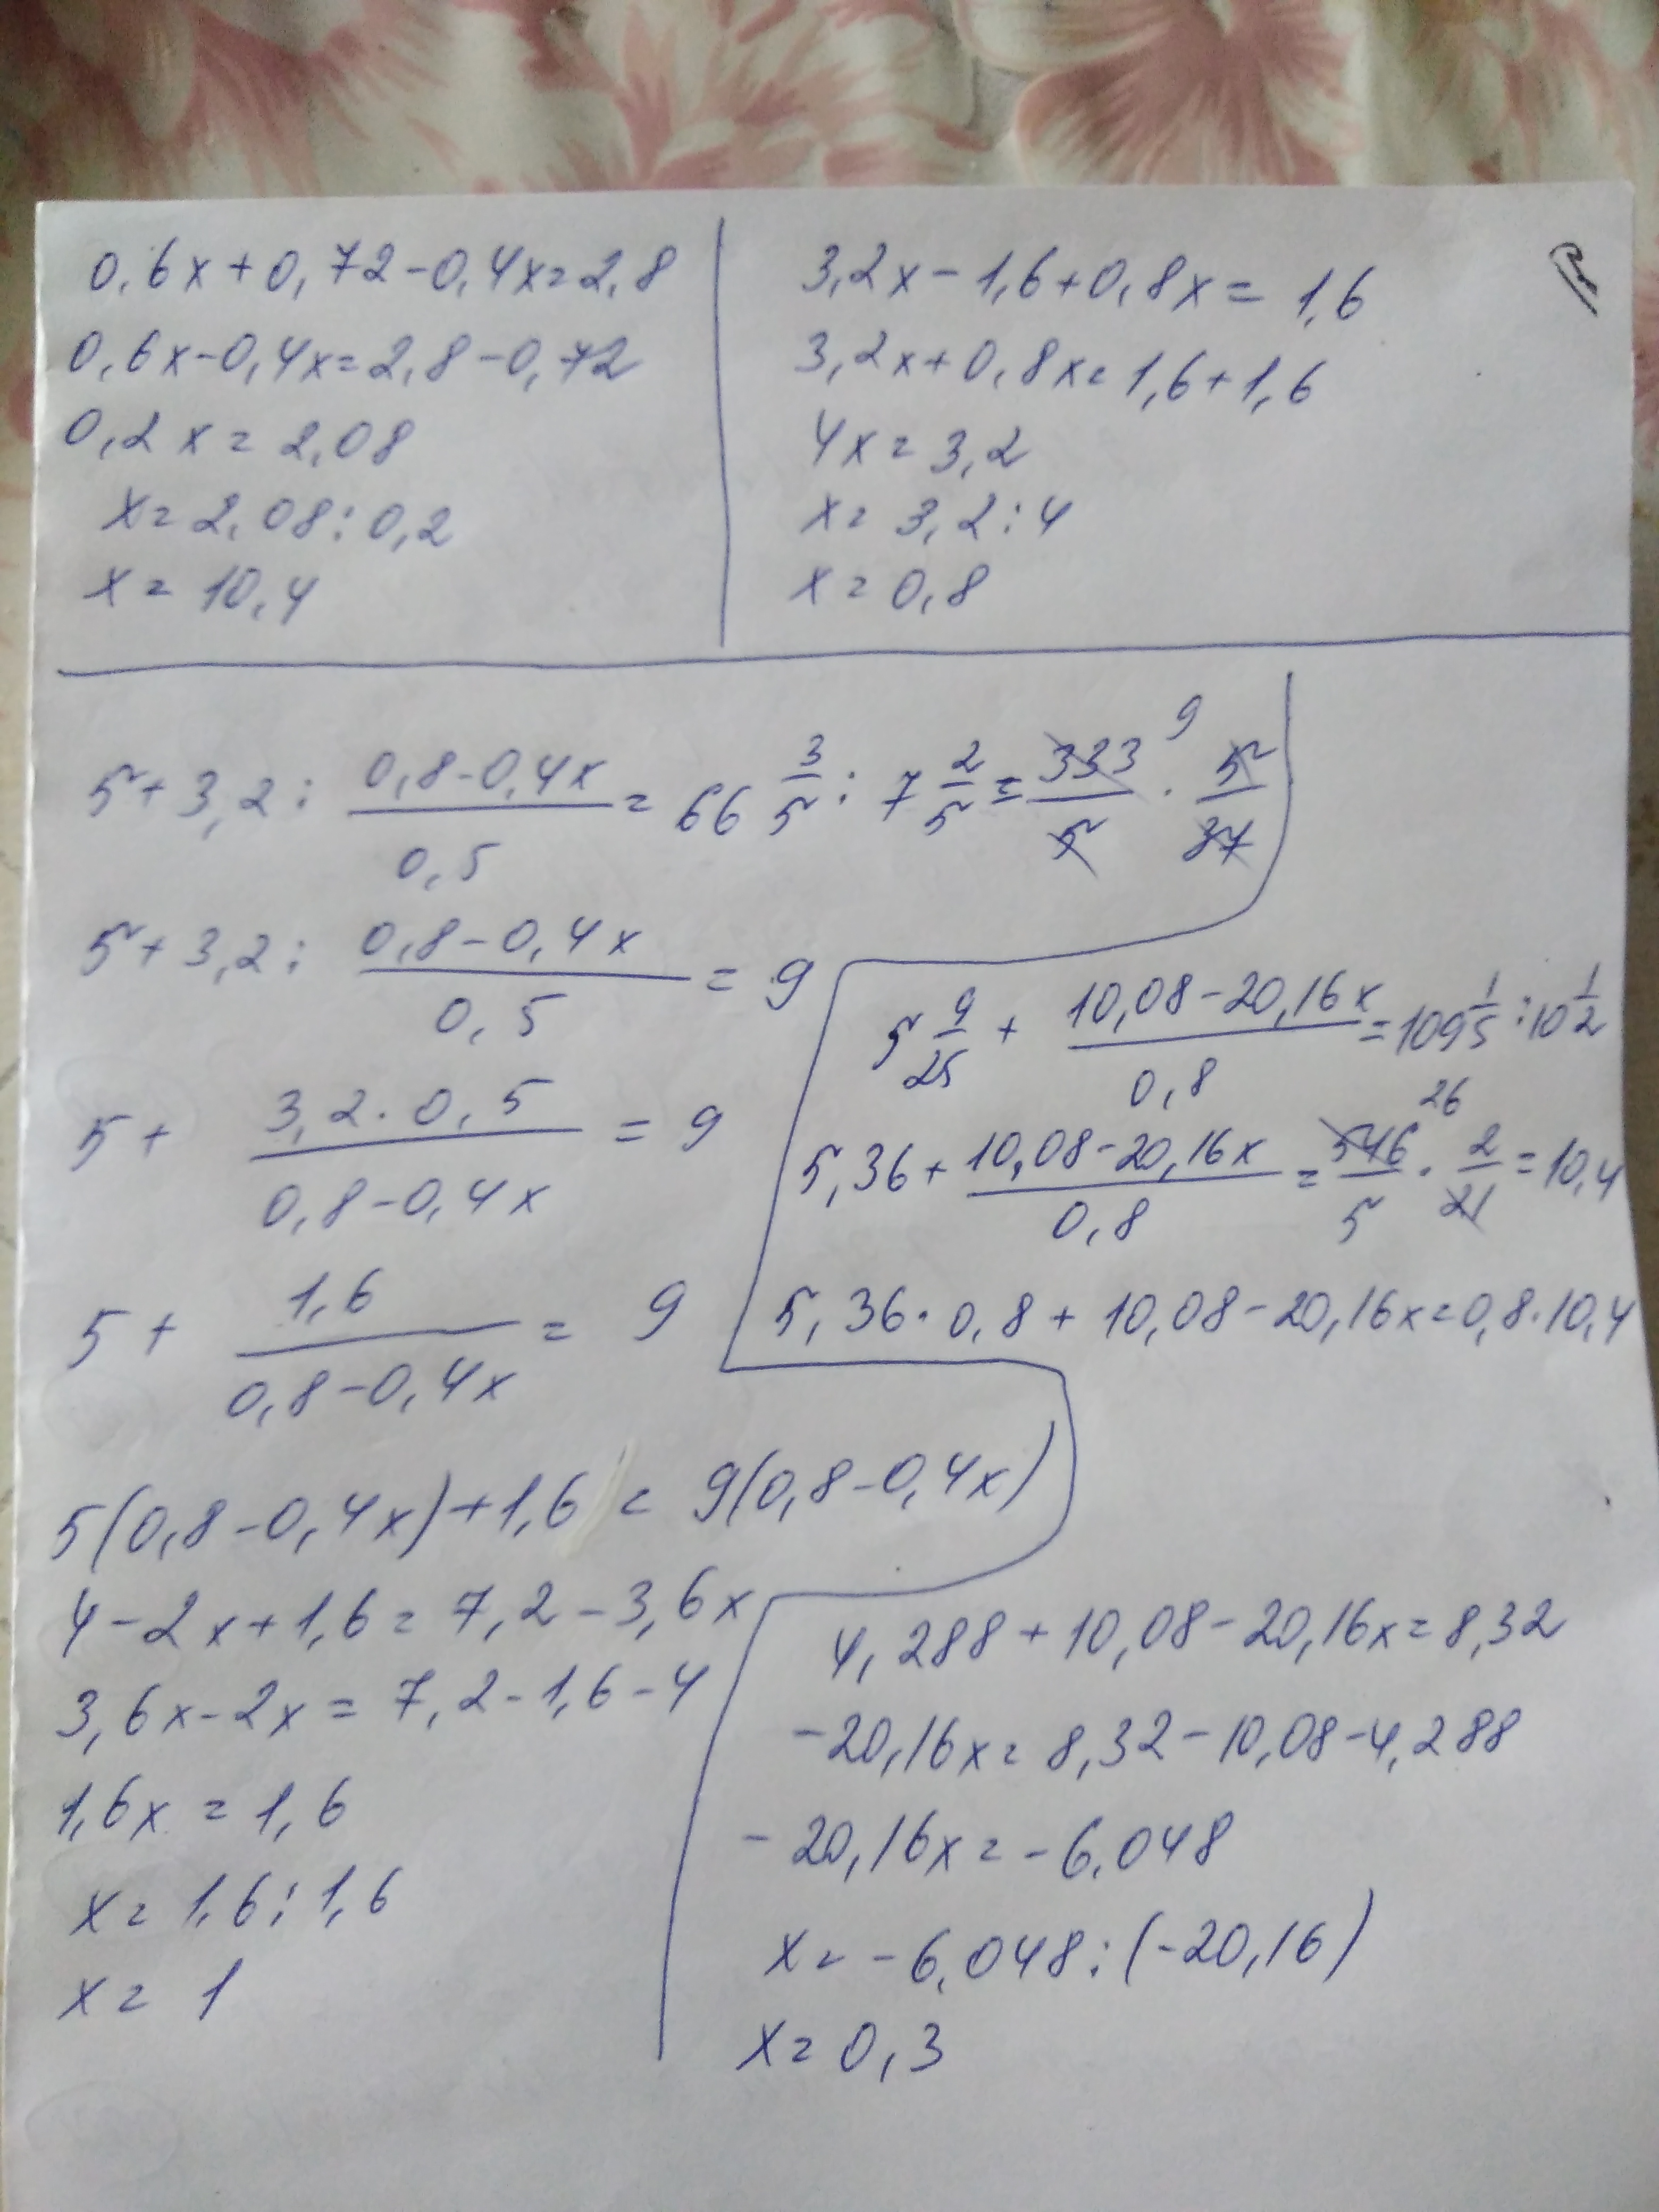 0,6x+0,72-0,4x=2,8
0,6x-0,4x=2,8-0,72
0,2x=2,08
x=2,08:0,2
x=10,4
3,2x-1,6+0,8x=1,6
3,2x+0,8x=1,6+1,6
4x=3,2
x=3,2:4
x=0,8
5+3,2: (0,8-0,4x)/0,5 = 66 3/5 : 7 2/5 = 333/5 9 · 5/37
5+3,2: (0,8-0,4x)/0,5 = 9
5+ (3,2·0,5)/(0,8-0,4x) = 9
5+ 1,6/(0,8-0,4x) = 9
5(0,8-0,4x)+1,6=9(0,8-0,4x)
4-2x+1,6=7,2-3,6x
3,6x-2x=7,2-1,6-4
1,6x=1,6
x=1,6:1,6
x=1
5 9/25 + (10,08-20,16x)/0,8 = 109 1/5 : 10 1/2
5,36+ (10,08-20,16x)/0,8 = 546/5 26 · 2/21 = 10,4
5,36·0,8+10,08-20,16x=0,8·10,4
4,288+10,08-20,16x=8,32
-20,16x=8,32-10,08-4,288
-20,16x=-6,048
x=-6,048:(-20,16)
x=0,3